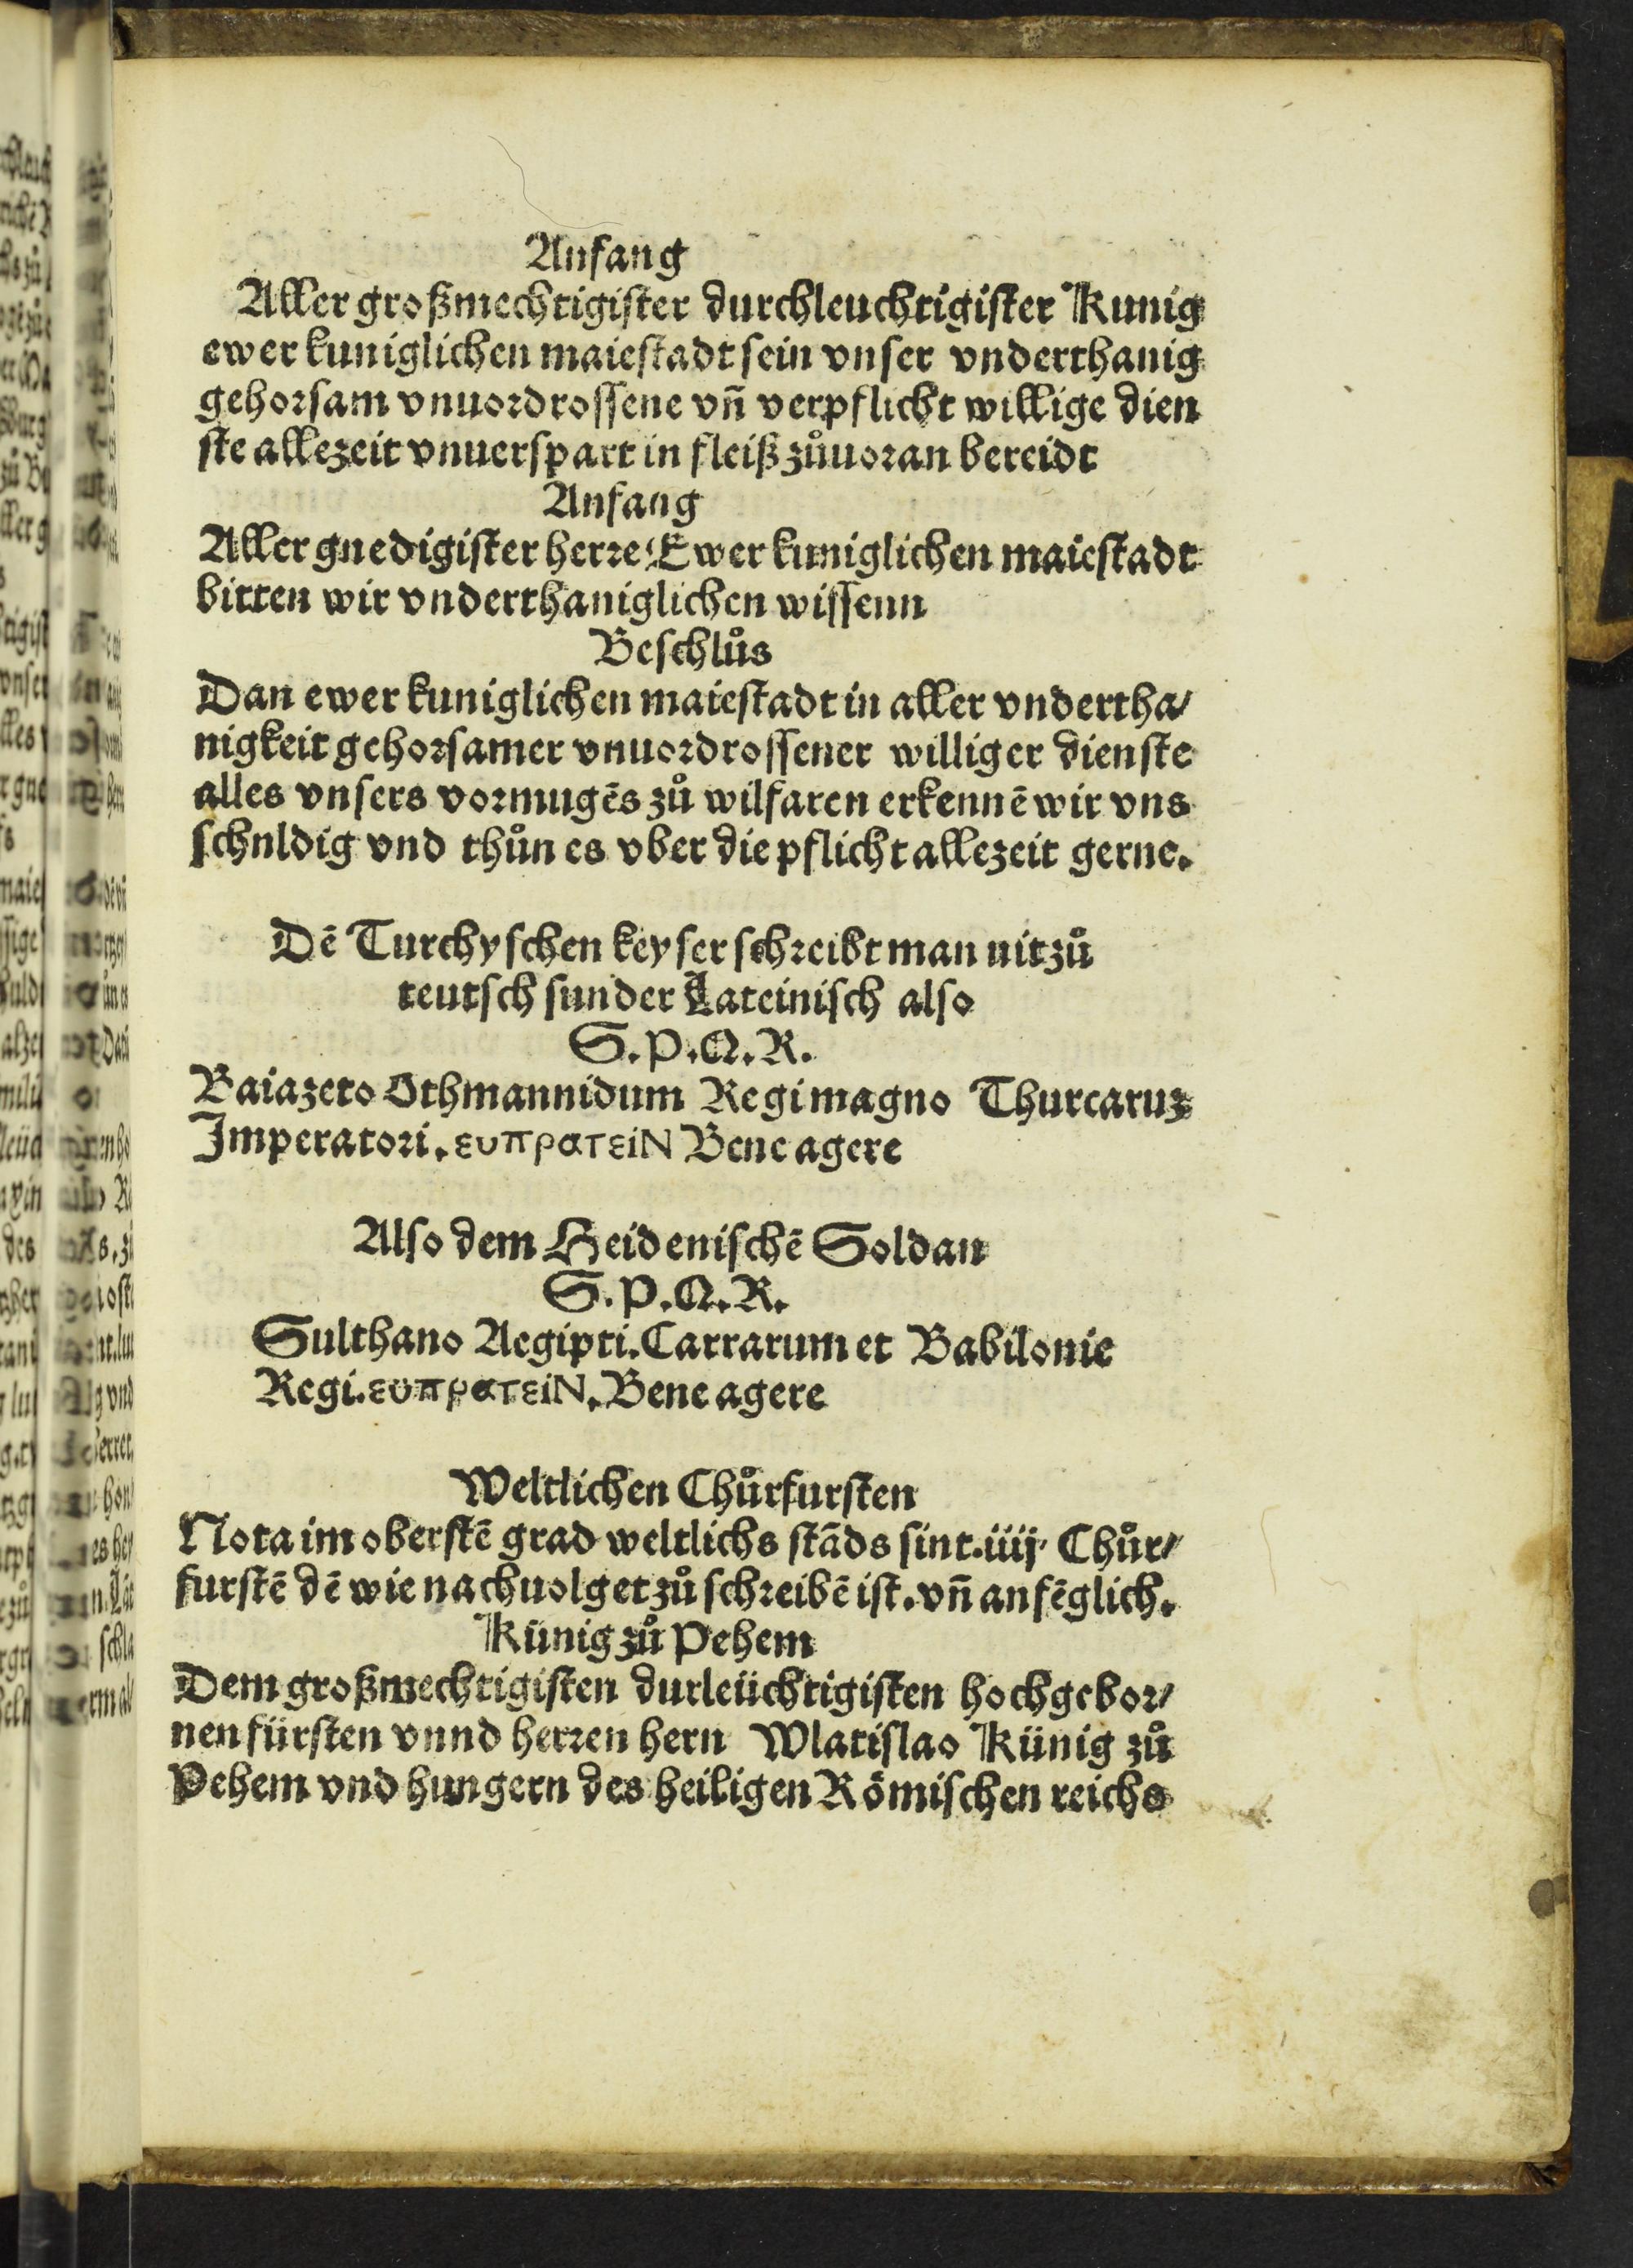 Anfang
Aller großmechtigister durchleuchtigister Kunig
ewer kuniglichen maiestadt sein vnser vnderthanig
gehorsam vnuordrossene vñ verpflicht willige dien
ste allezeit vnuerspart in fleiß zůuoran bereidt
Anfang
Aller gnedigister herre Ewer kuniglichen maiestadt
bitten wir vnderthaniglichen wissenn
Beschlůs
Dan ewer kuniglichen maiestadt in aller vndertha/
nigkeit gehorsamer vnuordrossener williger dienste
alles vnsers vormugēs zů wilfaren erkennē wir vns
schnldig vnd thůn es vber die pflicht allezeit gerne.
Dē Turchyschen keyser schreibt man nit zů
teutsch sunder Lateinisch also
S.P.Q.R.
Baiazeto Othmannidum Regi magno Thurcaruꝫ
Imperatori. ευπρατειΝ Bene agere
Also dem Heidenischē Soldan
S.P.Q.R.
Sulthano Aegipti. Carrarum et Babilonie
Regi. ευπρατειΝ. Bene agere
Weltlichen Chůrfursten
Nota im oberstē grad weltlichs stāds sint. iiij. Chůr/
furstē dē wie nachuolget zů schreibē ist. vñ anfēglich.
Künig zů Pehem
Dem großmechtigisten durleüchtigisten hochgebor/
nen fürsten vnnd herren hern Wlatislao Künig zů
Pehem vnd hungern des heiligen Römischen reichs